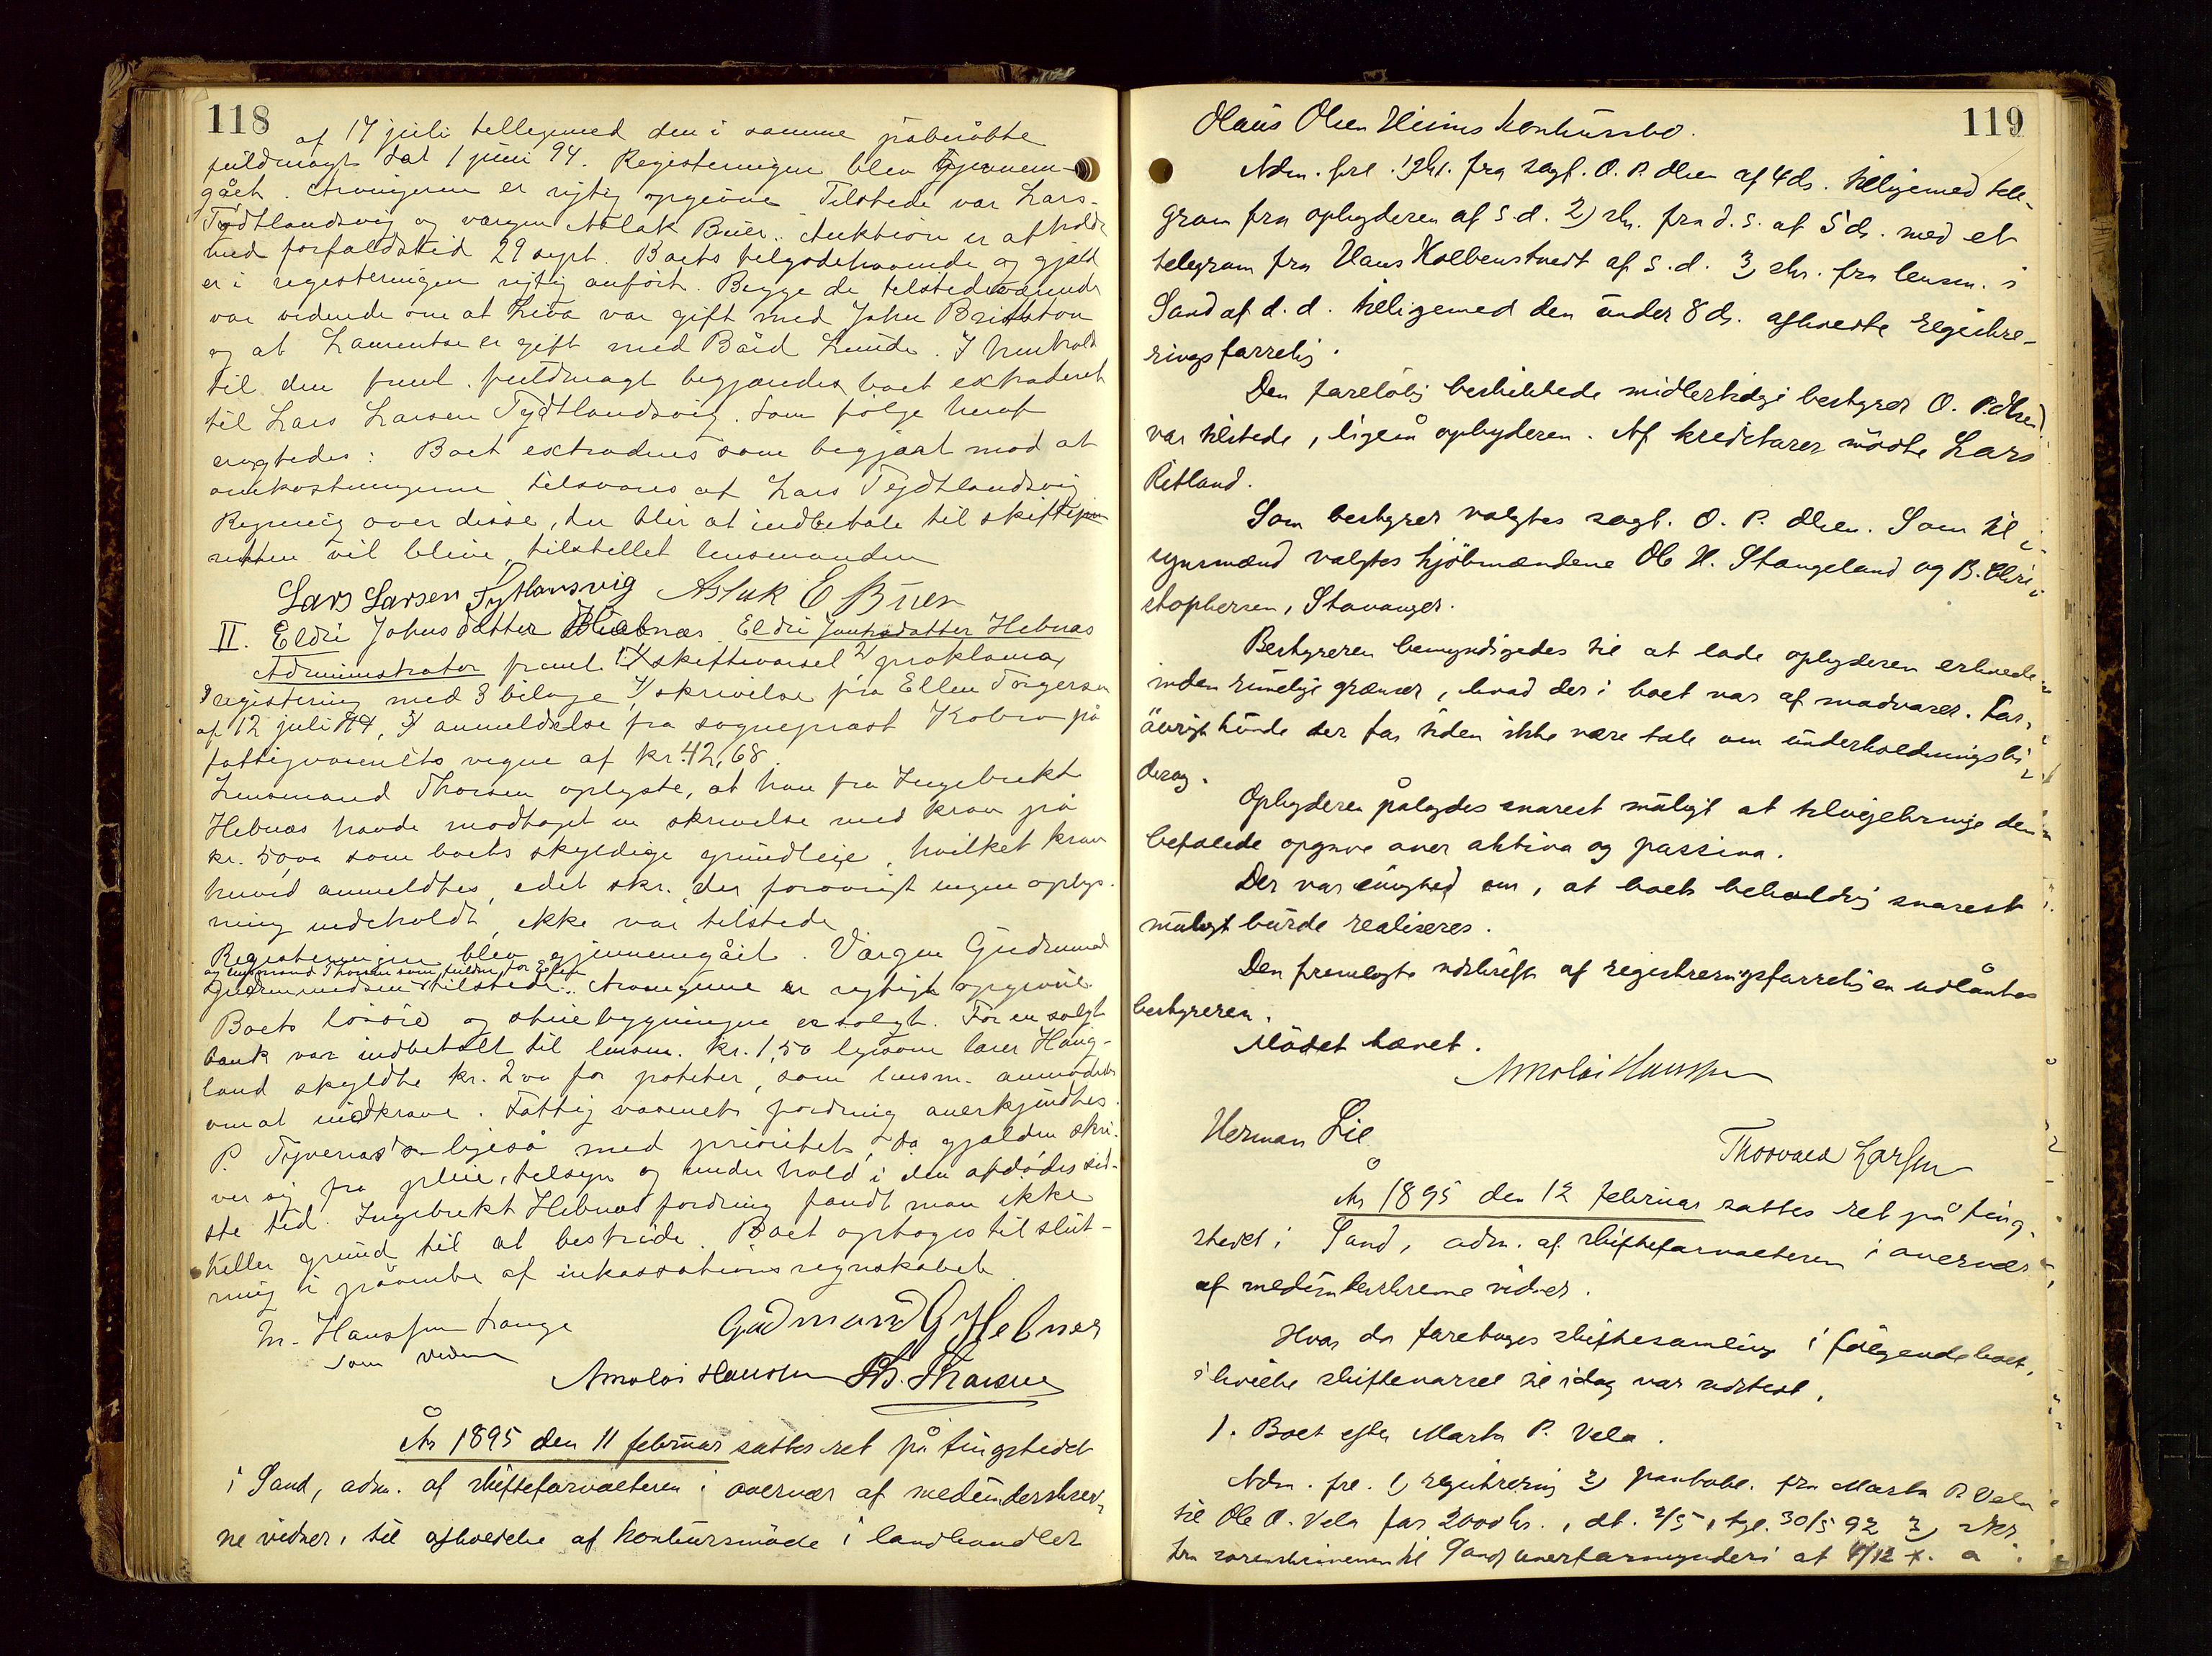 118
af 17 juli tilligemed den i samme påberåbte
fuldmagt dat 1 juni 94. Registeringen blev gjennem-
gået. Arvingerne er rigtig opgivne Tilstede var Lars
Tydtlandsvig og værgen Aslak Buer. Auktion er afholdt
med forfaldstid 29 sept. Boets tilgodehavende og gjæld
er i registeringen rigtig anført. Begge de tilstedeværende
var vidende om at Liva var gift med John
og at Laurentse er gift med Båid Lunde. I henhold
til den freml. fuldmagt begjærdes boet extraderet
til Lars Larsen Tydtlandsvig. Som følge heraf
eragtedes: Boet extraderes som begjært mod at
omkostningerne tilsvares af Lars Tydtlandsvig
Regning over disse, der blir at indbetale til skifte-
retten vil blive tilstillet lensmanden
Lars Larsen Tytlansvig Aslak E Buer
II. Eldri Johnsdatter Hebnæs. Eldri Jonsdatter Hebnæs
Administrator freml 1) skiftevarsel 2) proklama
3 registering med 3 bilage 4) skrivelse fra Ellen Torgersen
af 12 juli 5) anmeldelse fra sogneprest Kobro på
fattigvæsenets vegne af kr. 42,68.
Lensmand Thorsen oplyste, at han fra Ingebrikt
Hebnæs havde modtaget en skrivelse med krav på
kr. 50,00 som boets skyldige grundleie, hvilket krav
herved anmeldtes, idet skr. der forøvrigt ingen oplys-
ning indeholdt, ikke var tilstede
Registeringen blev gjennemgået. Værgen Gudmund
og lensmand Thorsen som fuldm. for
Gudmundsen tilstede. Arvingerne er rigtigt opgivne
Boets løsøre og stuebygningen er solgt. For en solgt
bænk var indbetalt til lensm. kr. 1,50 ligesom Haug-
land skyldte kr. 2 00 for poteter, som lensm. anmodedes
om at indkræve. Fattigvæsenets fordring anerkjendtes.
P. Tyvenæs's ligeså med prioritet, da gjælden skri-
ver sig fra pleie, tilsyn og underhold i den afdødes sid-
ste tid. Ingebrikt Hebnæs fordring fandt man ikke
heller grund til at bestride. Boet optages til slut-
ning i påvente af inkassationsregnskabet.
M. Hanssen Lange Gudmund G Hebnes
som vidne
Nicolai Hanssen Th. Thorsen
År 1895 den 11 februar sattes ret på tingstedet
i Sand, adm. af skifteforvalteren i overvær af medunderskrev-
ne vidner, til afholdelse af konkursmøde i landhandler
119
Olaus Olsen Heims konkursbo.
Adm. fre. 1) skr. fra sagf. O. P. Olsen af 4 ds. tilligemed tele-
gram fra opbyderen af s.d. 2) skr. fra d. s. af 5 ds. med et
telegram fra Hans Kolbenstvedt af s.d. 3) skr. fra lensm. i
Sand af d. d. tilligemed den under 8 ds. afholdte registre-
ringsforretn.
Den foreløbig beskikkede midlertidige bestyrer O. P. Olsen
var tilstede, ligeså opbyderen. Af kreditorer mødte Lars
Ritland.
Som bestyrer valgtes sagf. O. P. Olsen. Som til-
synsmænd valgtes kjøbmændene Ole H. Stangeland og B. Chri-
stophersen, Stavanger.
Bestyreren bemyndigedes til at lade opbyderen erholde
inden rimelige grænser, hvad der i boet var af madvarer. For-
øvrigt kunde der for tiden ikke være tale om underholdningsbi-
derag.
Opbyderen pålagdes snarest muligt at tilveiebringe den
befalede opgave over aktiva og passiva.
Der var enighed om, at boets beholdng snarest
muligt burde realiseres.
Den fremlagte udskrift af registreringsforretngen udlåntes
bestyreren.
Mødet hævet.
Nicolai Hanssen
Herman Lie Thorvald Larsen
År 1895 den 12 februar sattes ret på ting-
stedet i Sand, adm. af skifteforvalteren i overvær
af medunderskrevne vidner.
Hvor da foretoges skiftesamling i følgende boer,
i hvilke skiftevarsel til idag var udstedt.
1. Boet efter Marta P. Vela.
Adm. fre. 1) registrering 2) pantobl. fra Marta P. Vela
til Ole O. Vela for 2000 kr., dt. 2/5, tgl. 30/5 92 3) skr.
fra sorenskriveren til Sand overformynderi af 4/12 f. a.